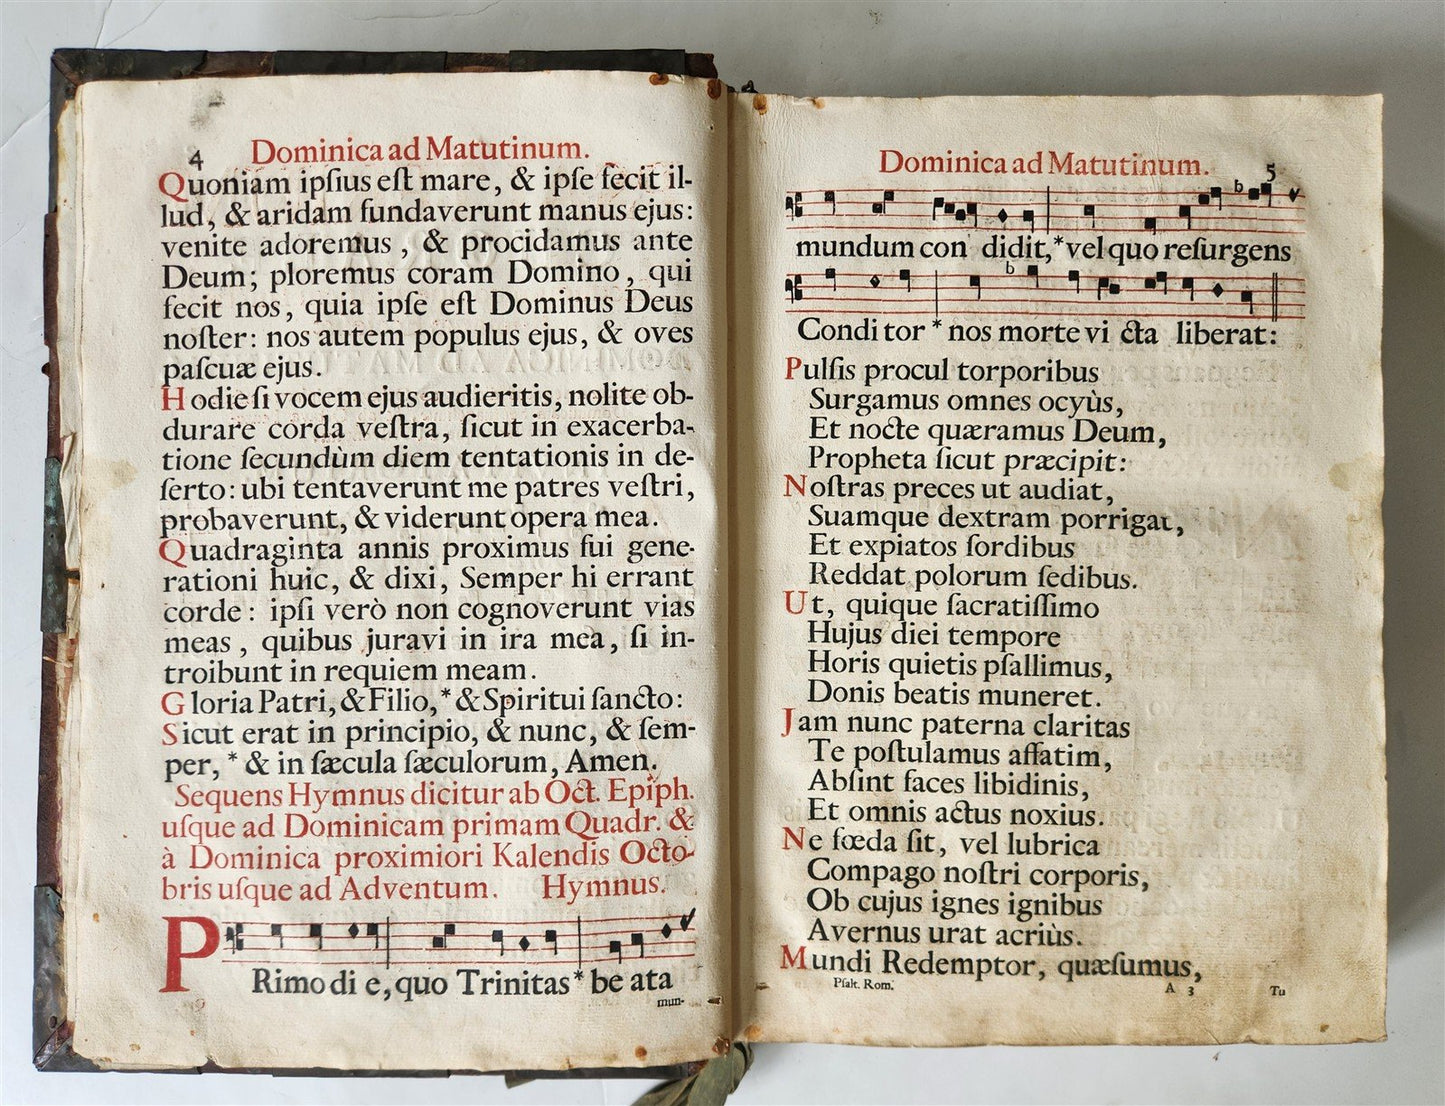 4 Dominica ad Matutinum.
Quoniam ipſius eſt mare, & ipſe fecit il-
lud, & aridam fundaverunt manus ejus:
venite adoremus, & procidamus ante
Deum; ploremus coram Domino, qui
fecit nos, quia ipſe eſt Dominus Deus
noſter: nos autem populus ejus, & oves
paſcuæ ejus.
Hodie ſi vocem ejus audieritis, nolite ob-
durare corda veſtra, ſicut in exacerba-
tione ſecundùm diem tentationis in de-
ſerto: ubi tentaverunt me patres veſtri,
probaverunt, & viderunt opera mea.
Quadraginta annis proximus fui gene-
rationi huic, & dixi, Semper hi errant
corde: ipſi verò non cognoverunt vias
meas, quibus juravi in ira mea, ſi in-
troibunt in requiem meam.
Gloria Patri, & Filio, * & Spiritui ſancto:
Sicut erat in principio, & nunc, & ſem-
per, * & in ſæcula ſæculorum, Amen.
Sequens Hymnus dicitur ab Oct. Epiph.
uſque ad Dominicam primam Quadr. &
à Dominica proximiori Kalendis Octo-
bris uſque ad Adventum. Hymnus.
PRimo di e, quo Trinitas * be ata
mun-
Dominica ad Matutinum. 5
mundum con didit, * vel quo reſurgens
Condi tor * nos morte vi cta liberat:
Pulſis procul torporibus
Surgamus omnes ocyùs,
Et nocte quæramus Deum,
Propheta ſicut præcipit:
Noſtras preces ut audiat,
Suamque dextram porrigat,
Et expiatos ſordibus
Reddat polorum ſedibus.
Ut, quique ſacratiſſimo
Hujus diei tempore
Horis quietis pſallimus,
Donis beatis muneret.
Jam nunc paterna claritas
Te poſtulamus affatim,
Abſint faces libidinis,
Et omnis actus noxius.
Ne fœda ſit, vel lubrica
Compago noſtri corporis,
Ob cujus ignes ignibus
Avernus urat acriùs.
Mundi Redemptor, quæſumus,
Pſalt. Rom. A 3 Tu